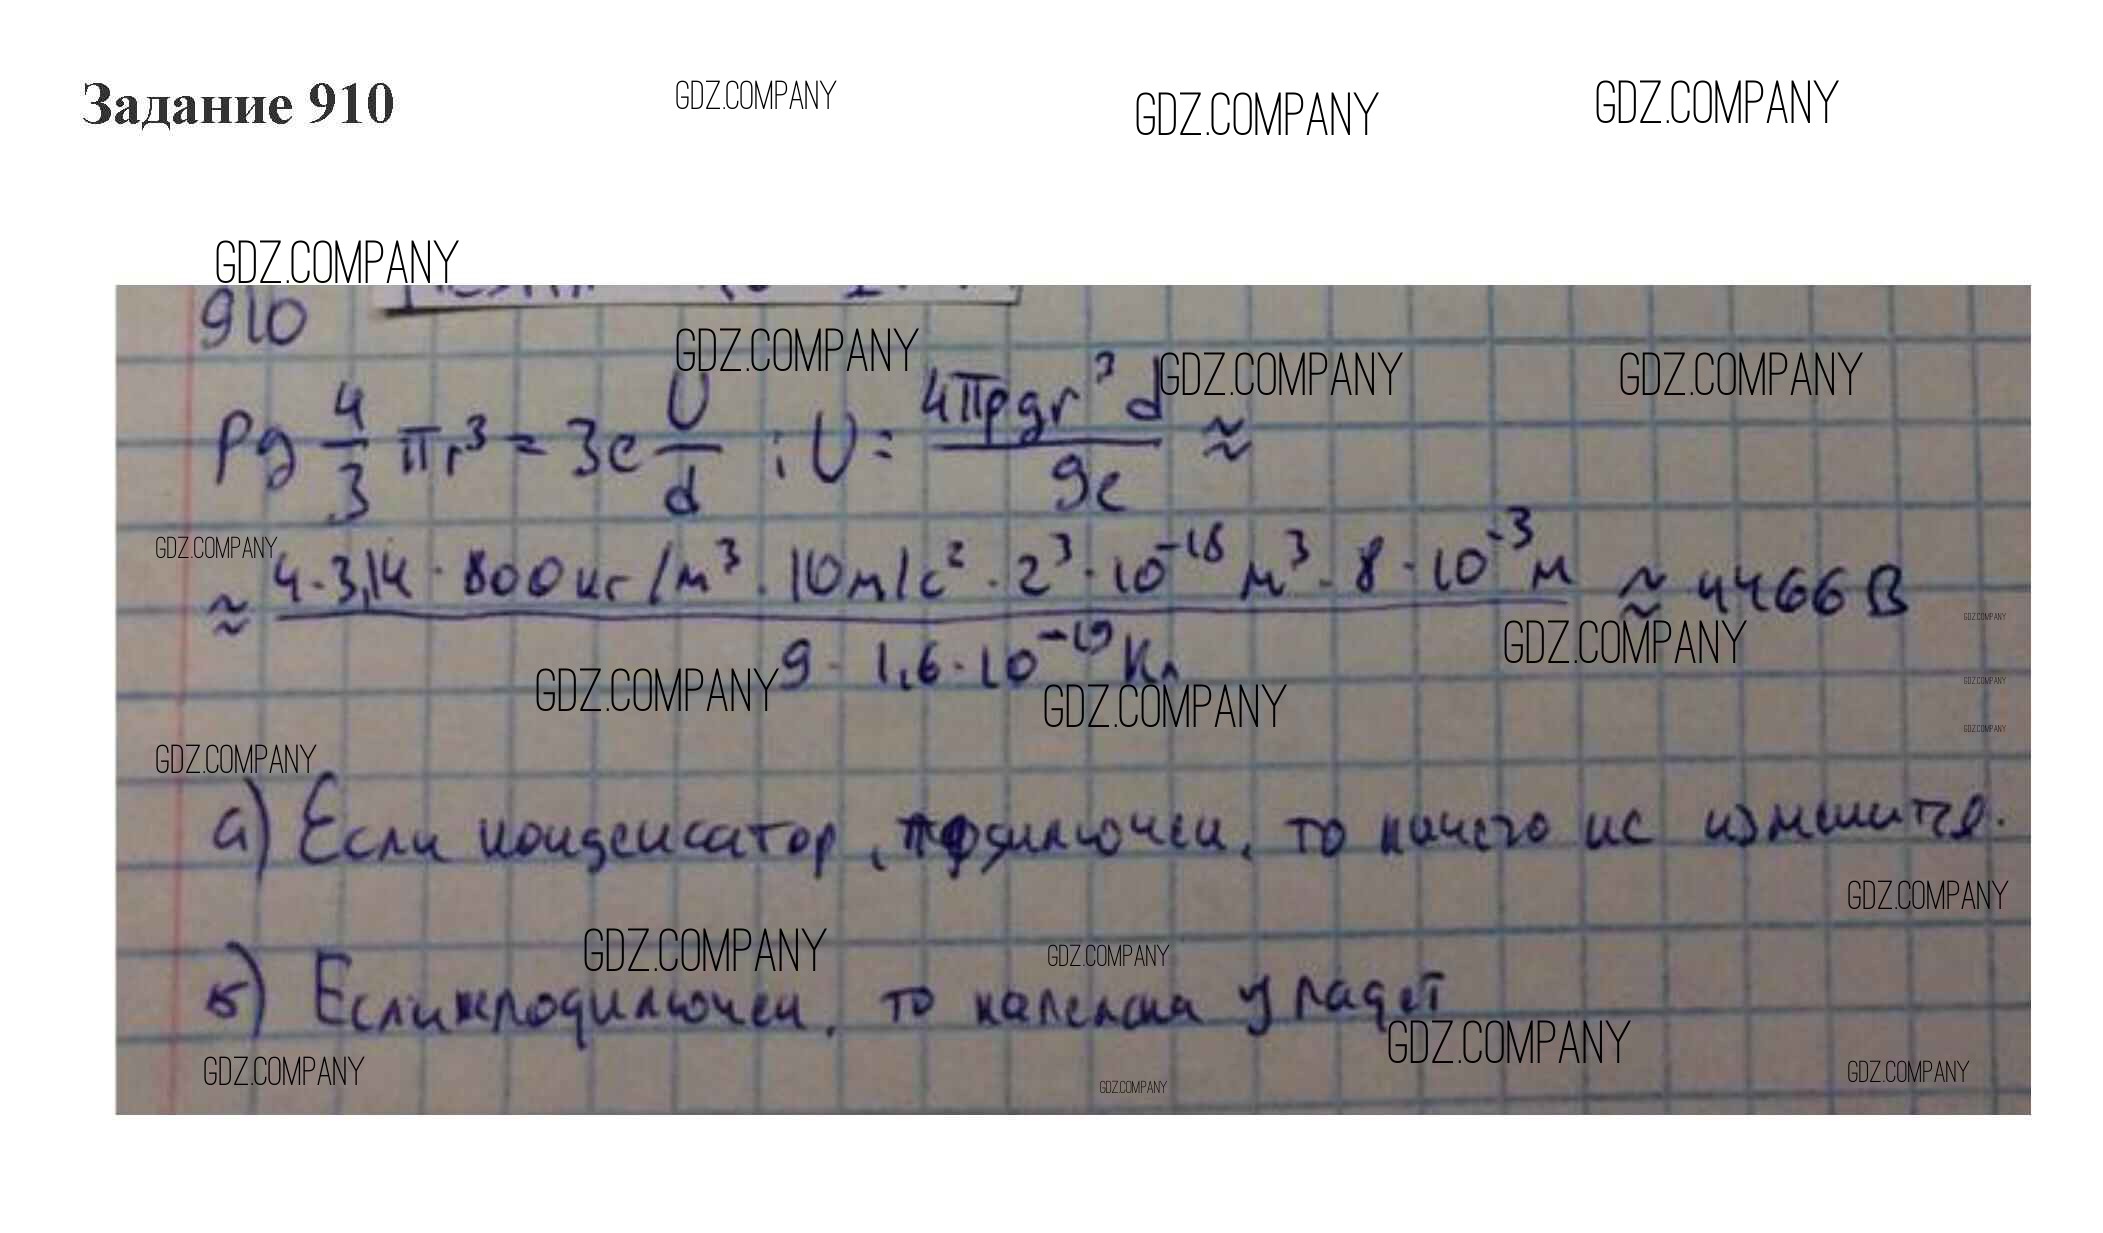 Задание 910
GDZ.COMPANY
GDZ.COMPANY
GDZ.COMPANY
GDZ.COMPANY
910
GDZ.COMPANY
GDZ.COMPANY
GDZ.COMPANY
ρg 4/3 πr³ = 3e U/d ; U = 4πρgr³d/9e ≈
GDZ.COMPANY
≈ 4·3,14·800кг/м³·10м/с²·2³·10⁻¹⁸м³·8·10⁻³м / 9·1,6·10⁻¹⁹Кл ≈ 4466В
GDZ.COMPANY
GDZ.COMPANY
GDZ.COMPANY
GDZ.COMPANY
GDZ.COMPANY
GDZ.COMPANY
GDZ.COMPANY
а) Если конденсатор, то ничего не изменится.
GDZ.COMPANY
GDZ.COMPANY
GDZ.COMPANY
б) Если то капелька упадет
GDZ.COMPANY
GDZ.COMPANY
GDZ.COMPANY
GDZ.COMPANY